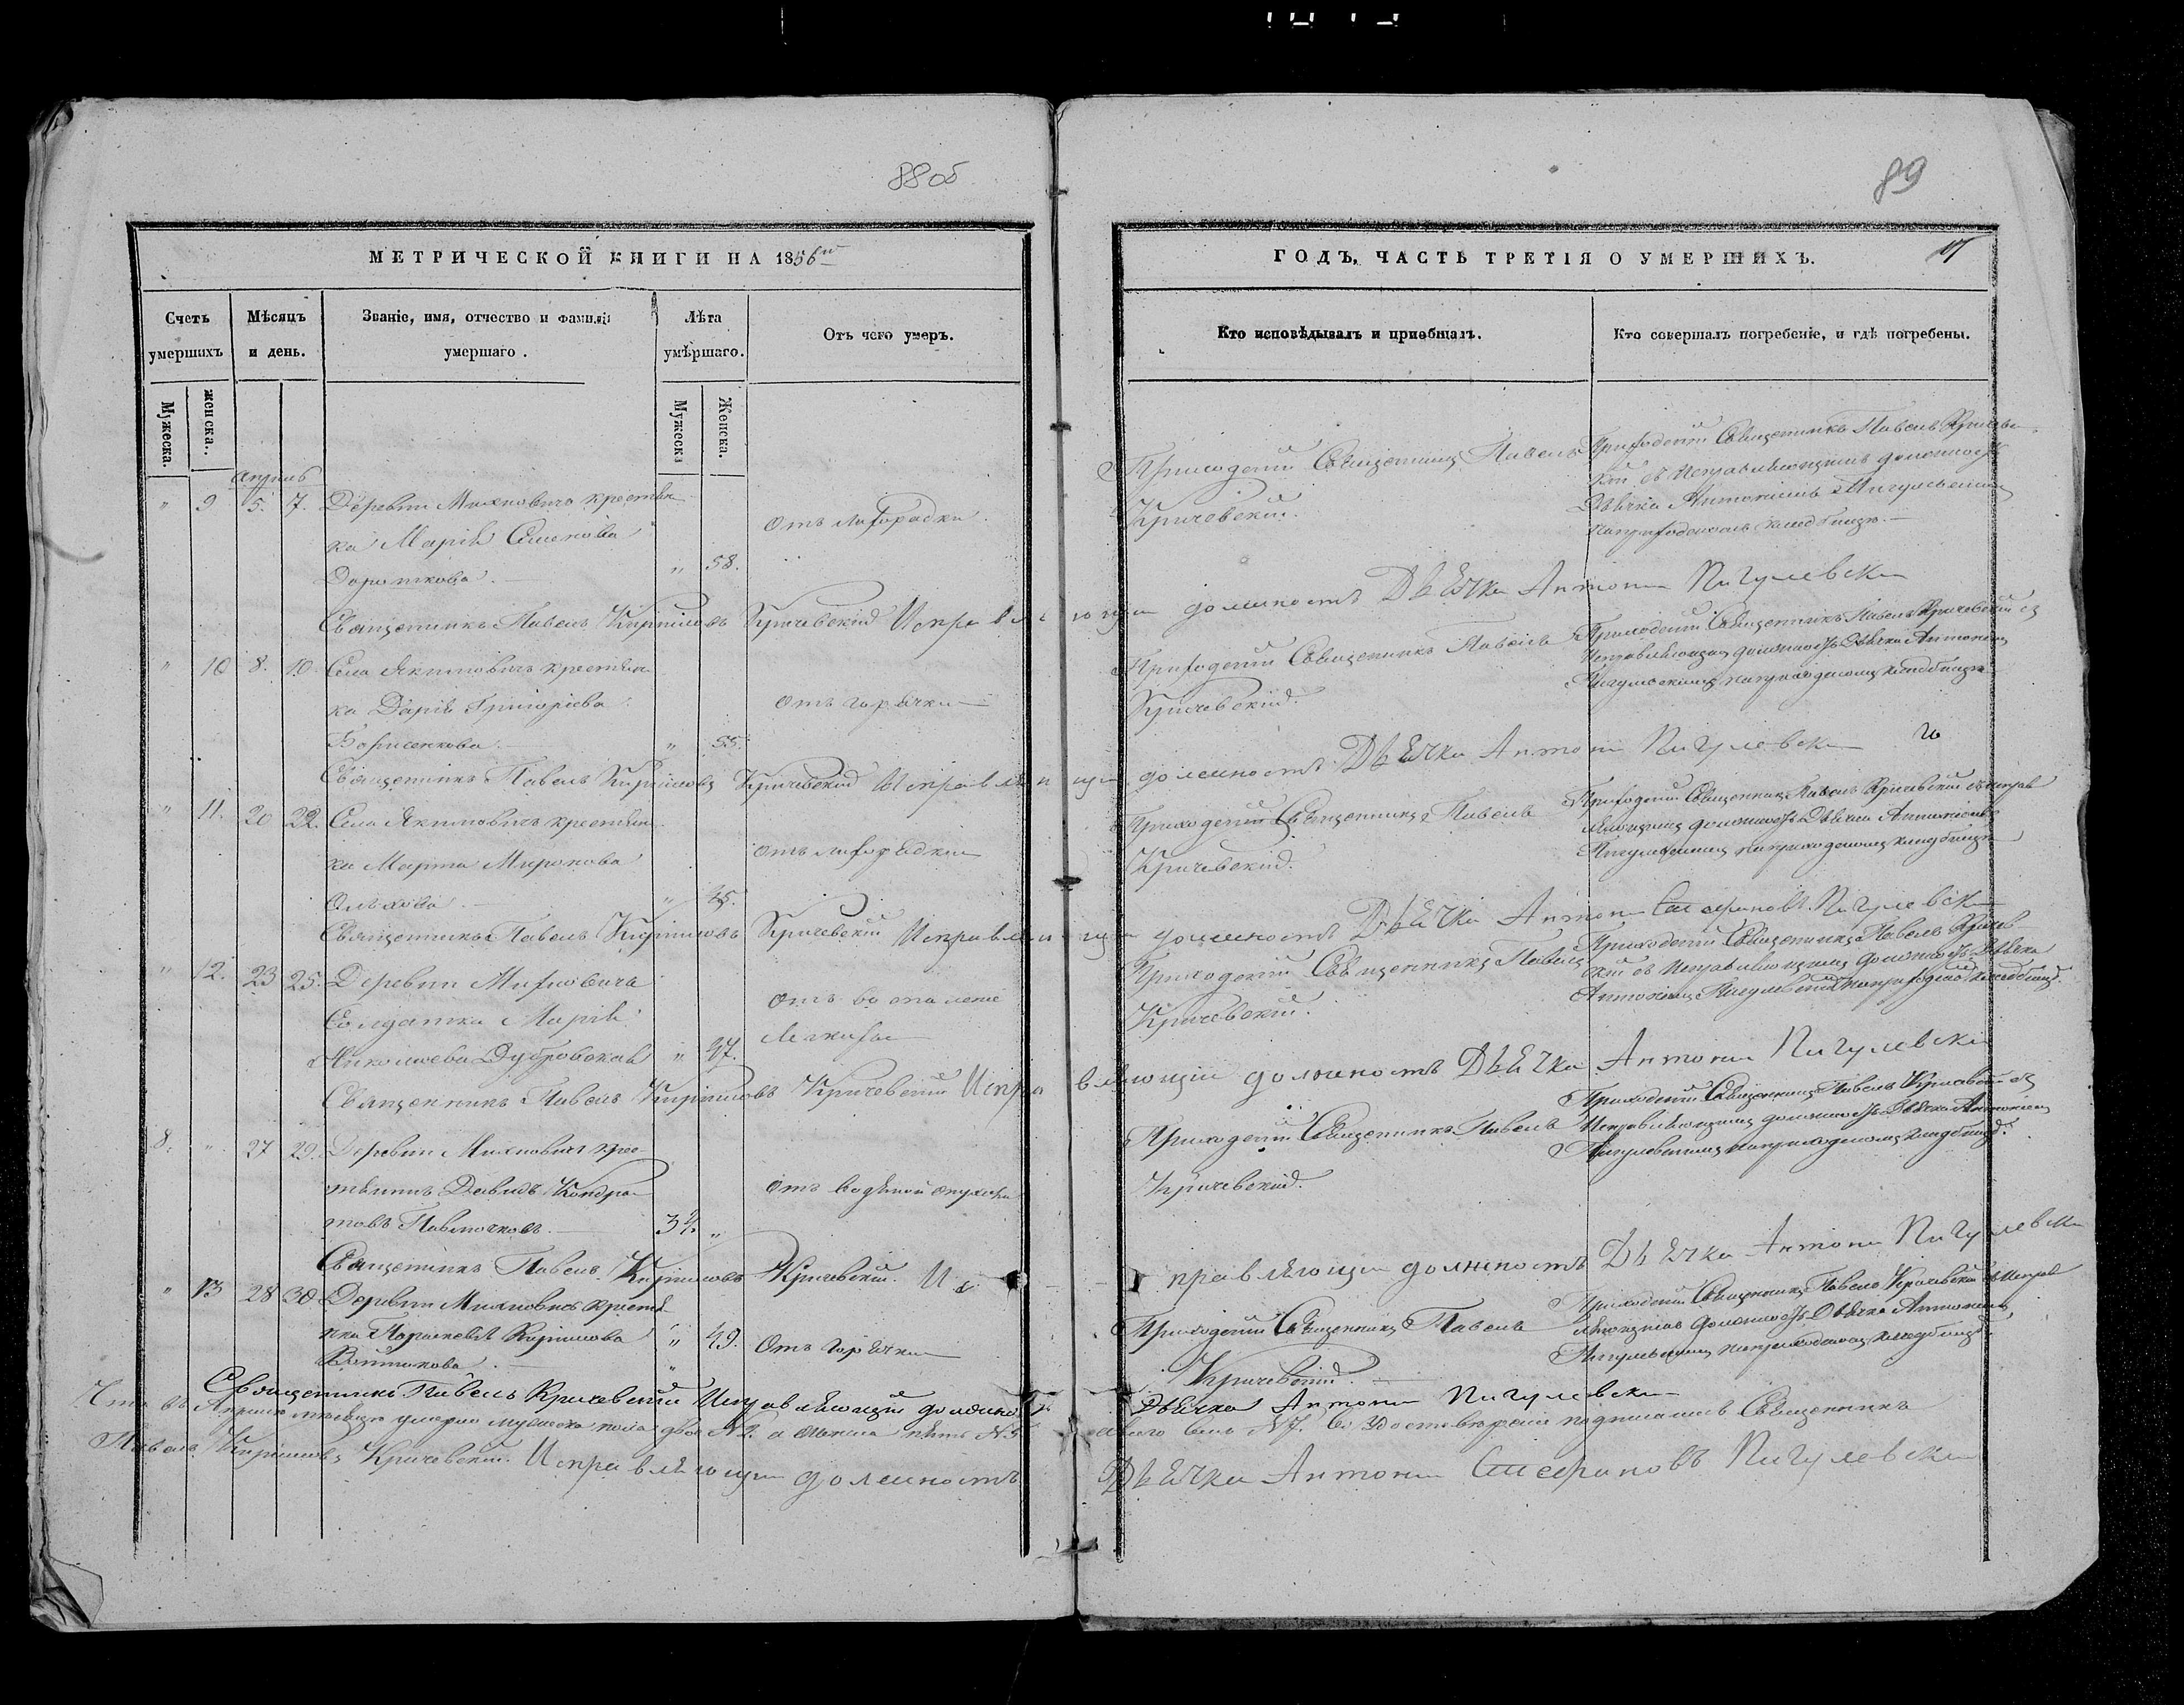 88 об
МЕТРИЧЕСКОЙ КНИГИ НА 1856
Счетъ умершихъ
Мужеска.
женска.
Мѣсяцъ и день.
Званіе, имя, отчество и фамилія умершаго.
Лѣта умѣршаго.
Мужеска
Женска.
Отъ чего умеръ.
Апрѣль
" 9 5. 7. Деревни крестьян
ка Марія Семенова
" 58.
Отъ лихорадки.
Священникъ Павелъ Кириловъ Кричевскій Исправляющій должность Дьячка Антоній Пигулевскій
" 10 8. 10. Села Якимовичъ крестьян
ка Дарія Григоріева
Борисенкова. " 55.
Отъ горячки
Священникъ Павелъ Кириловъ Кричевскій Исправляющій должность Дьячка Антоній Пигулевскій
" 11. 20 22. Села Якимовичъ крестьян
ка Марѳа Миронова
" 45.
отъ лихорадки
Священникъ Павелъ Кириловъ Кричевскій Исправляющій должность Дьячка Антоній Стефановъ Пигулевскій
" 12. 23 25. Деревни
Солдатка Марія
Николаева Дубровская " 37.
Отъ воспаленія
Священникъ Павелъ Кириловъ Кричевскій Исправляющій должность Дьячка Антоній Пигулевскій
8. " 27 29. Деревни крес
тьянинъ Давидъ Кондра
товъ Павлючковъ. 34. "
Отъ водяной опухоли
Священникъ Павелъ Кириловъ Кричевскій. Исправляющій должность Дьячка Антоній Пигулевскій
" 13 28 30 Деревни крестьян
ка Параскева Кирилова " 49.
Войтикова.
Отъ горячки
Священникъ Павелъ Кричевскій Исправляющій должность Дьячка Антоній Пигулевскій
Что въ Апрѣлѣ мѣсяцѣ умерло мужеска пола два №2. а женска пять №5 а всего семь №7. въ томъ подписались Священникъ
Павелъ Кириловъ Кричевскій. Исправляющій должность Дьячка Антоній Стефановъ Пигулевскій
89
ГОДЪ, ЧАСТЬ ТРЕТІЯ О УМЕРШИХЪ.
Кто исповѣдывалъ и пріобщалъ.
Кто совершалъ погребеніе, и гдѣ погребены.
Приходскій Священникъ Павелъ
Кричевскій.
Приходскій Священникъ Павелъ Кричевс
кій съ Исправляющимъ должность
Дьячка Антоніемъ Пигулевскимъ
на приходскомъ кладбищѣ.
Приходскій Священникъ Павелъ
Кричевскій.
Приходскій Священникъ Павелъ Кричевскій съ
Исправляющимъ должность Дьячка Антоніемъ
Пигулевскимъ на приходскомъ кладбищѣ
Приходскій Священникъ Павелъ
Кричевскій.
Приходскій Священникъ Павелъ Кричевскій съ Исправ
ляющимъ должность Дьячка Антоніемъ
Пигулевскимъ на приходскомъ кладбищѣ
Приходскій Священникъ Павелъ
Кричевскій.
Приходскій Священникъ Павелъ Кричев
скій съ Исправляющимъ должность Дьячка
Антоніемъ Пигулевскимъ на приходскомъ кладбищѣ.
Приходскій Священникъ Павелъ
Кричевскій.
Приходскій Священникъ Павелъ Кричевскій съ
Исправляющимъ должность Дьячка Антоніемъ
Пигулевскимъ на приходскомъ кладбищѣ.
Приходскій Священникъ Павелъ
Кричевскій.
Приходскій Священникъ Павелъ Кричевскій съ Исправ
ляющимъ должность Дьячка Антоніемъ
Пигулевскимъ на приходскомъ кладбищѣ.